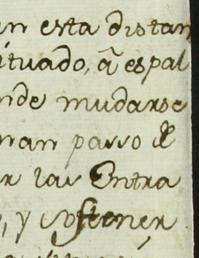 en esta distan
ituado, â espal
nde mudarse
nan passo de
r las Entra
, y sostener